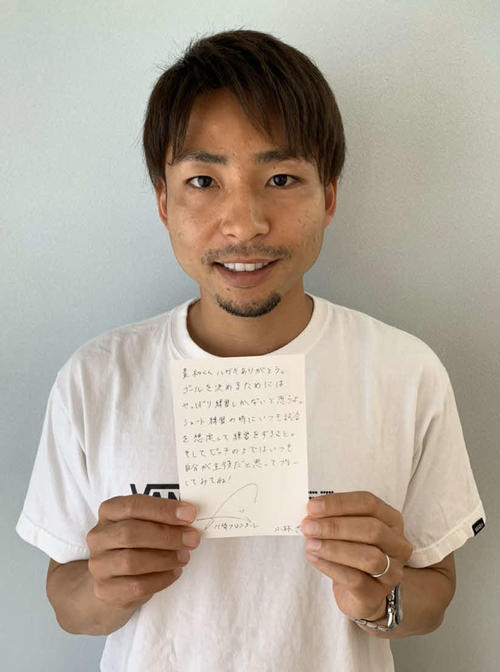 真和くんハガキありがとう。
ゴールを決めるためには
やっぱり練習しかないと思うよ。
シュート練習の時にいつも試合
を想定して練習をすること。
そしてピッチの上ではいつも
自分が主役だと思ってプレー
してみてね!
川崎フロンターレ 小林
VAN